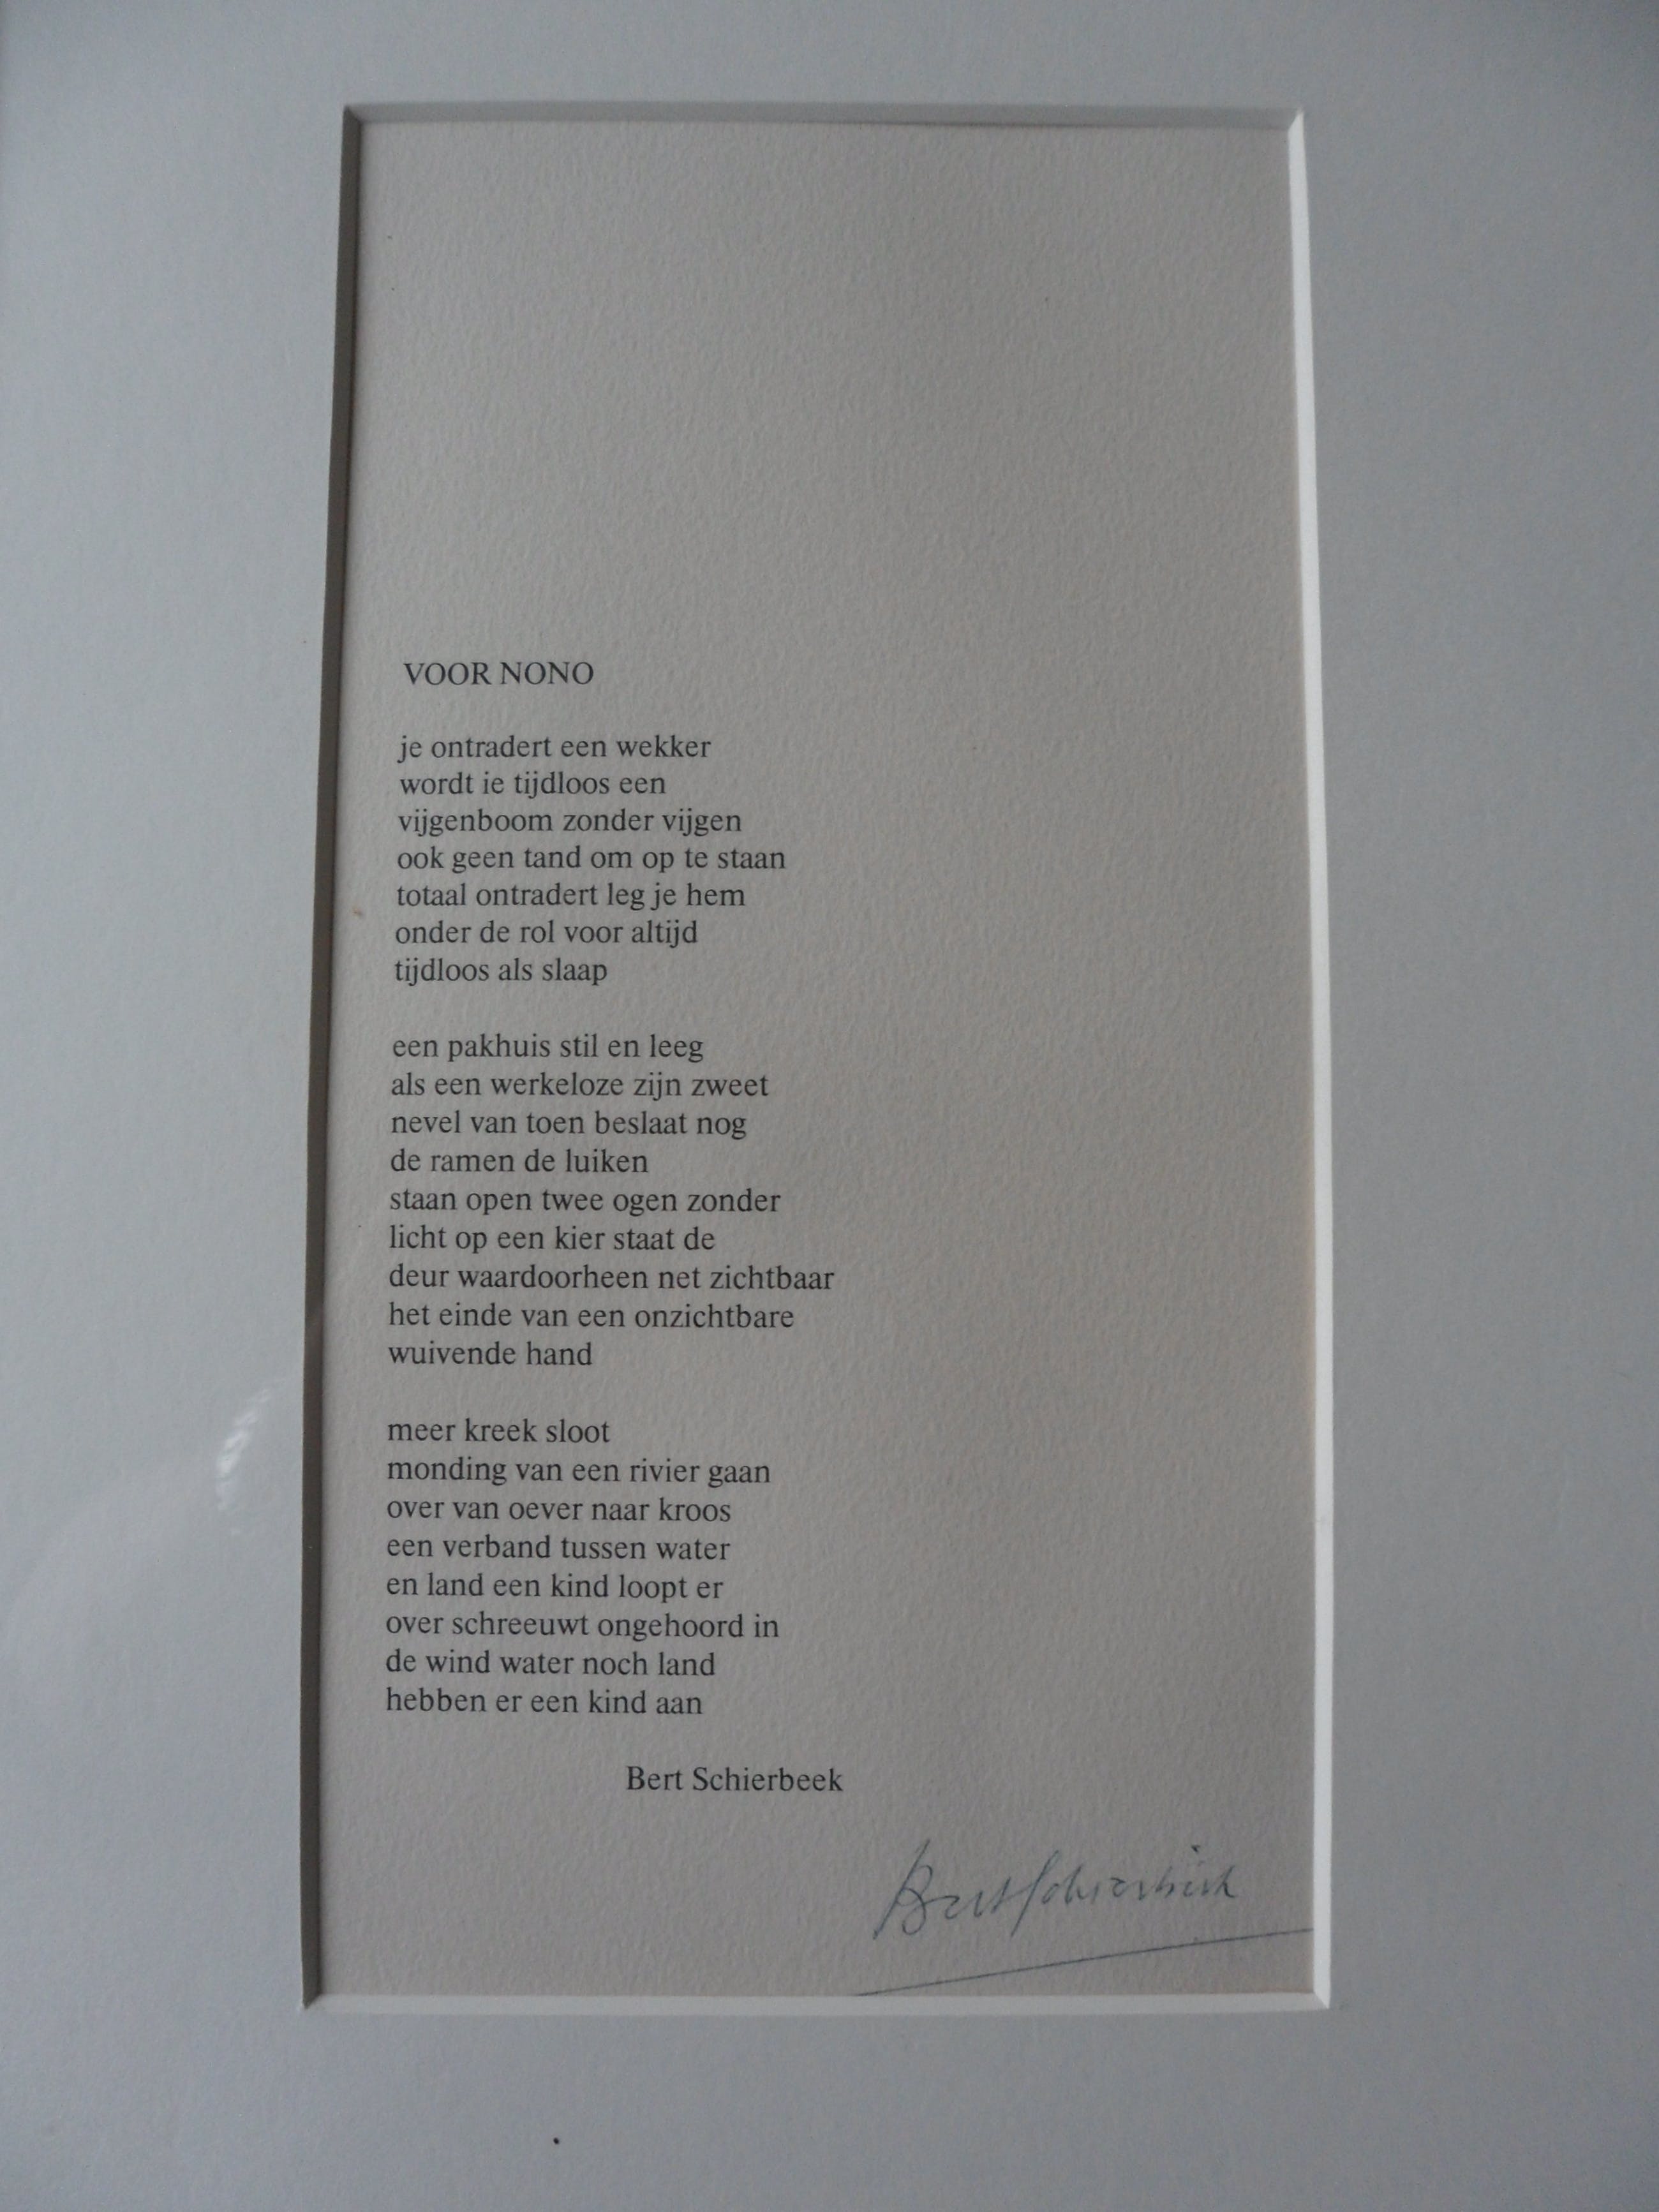 VOOR NONO
je ontradert een wekker
wordt ie tijdloos een
vijgenboom zonder vijgen
ook geen tand om op te staan
totaal ontradert leg je hem
onder de rol voor altijd
tijdloos als slaap
een pakhuis stil en leeg
als een werkeloze zijn zweet
nevel van toen beslaat nog
de ramen de luiken
staan open twee ogen zonder
licht op een kier staat de
deur waardoorheen net zichtbaar
het einde van een onzichtbare
wuivende hand
meer kreek sloot
monding van een rivier gaan
over van oever naar kroos
een verband tussen water
en land een kind loopt er
over schreeuwt ongehoord in
de wind water noch land
hebben er een kind aan
Bert Schierbeek
Bert Schierbeek